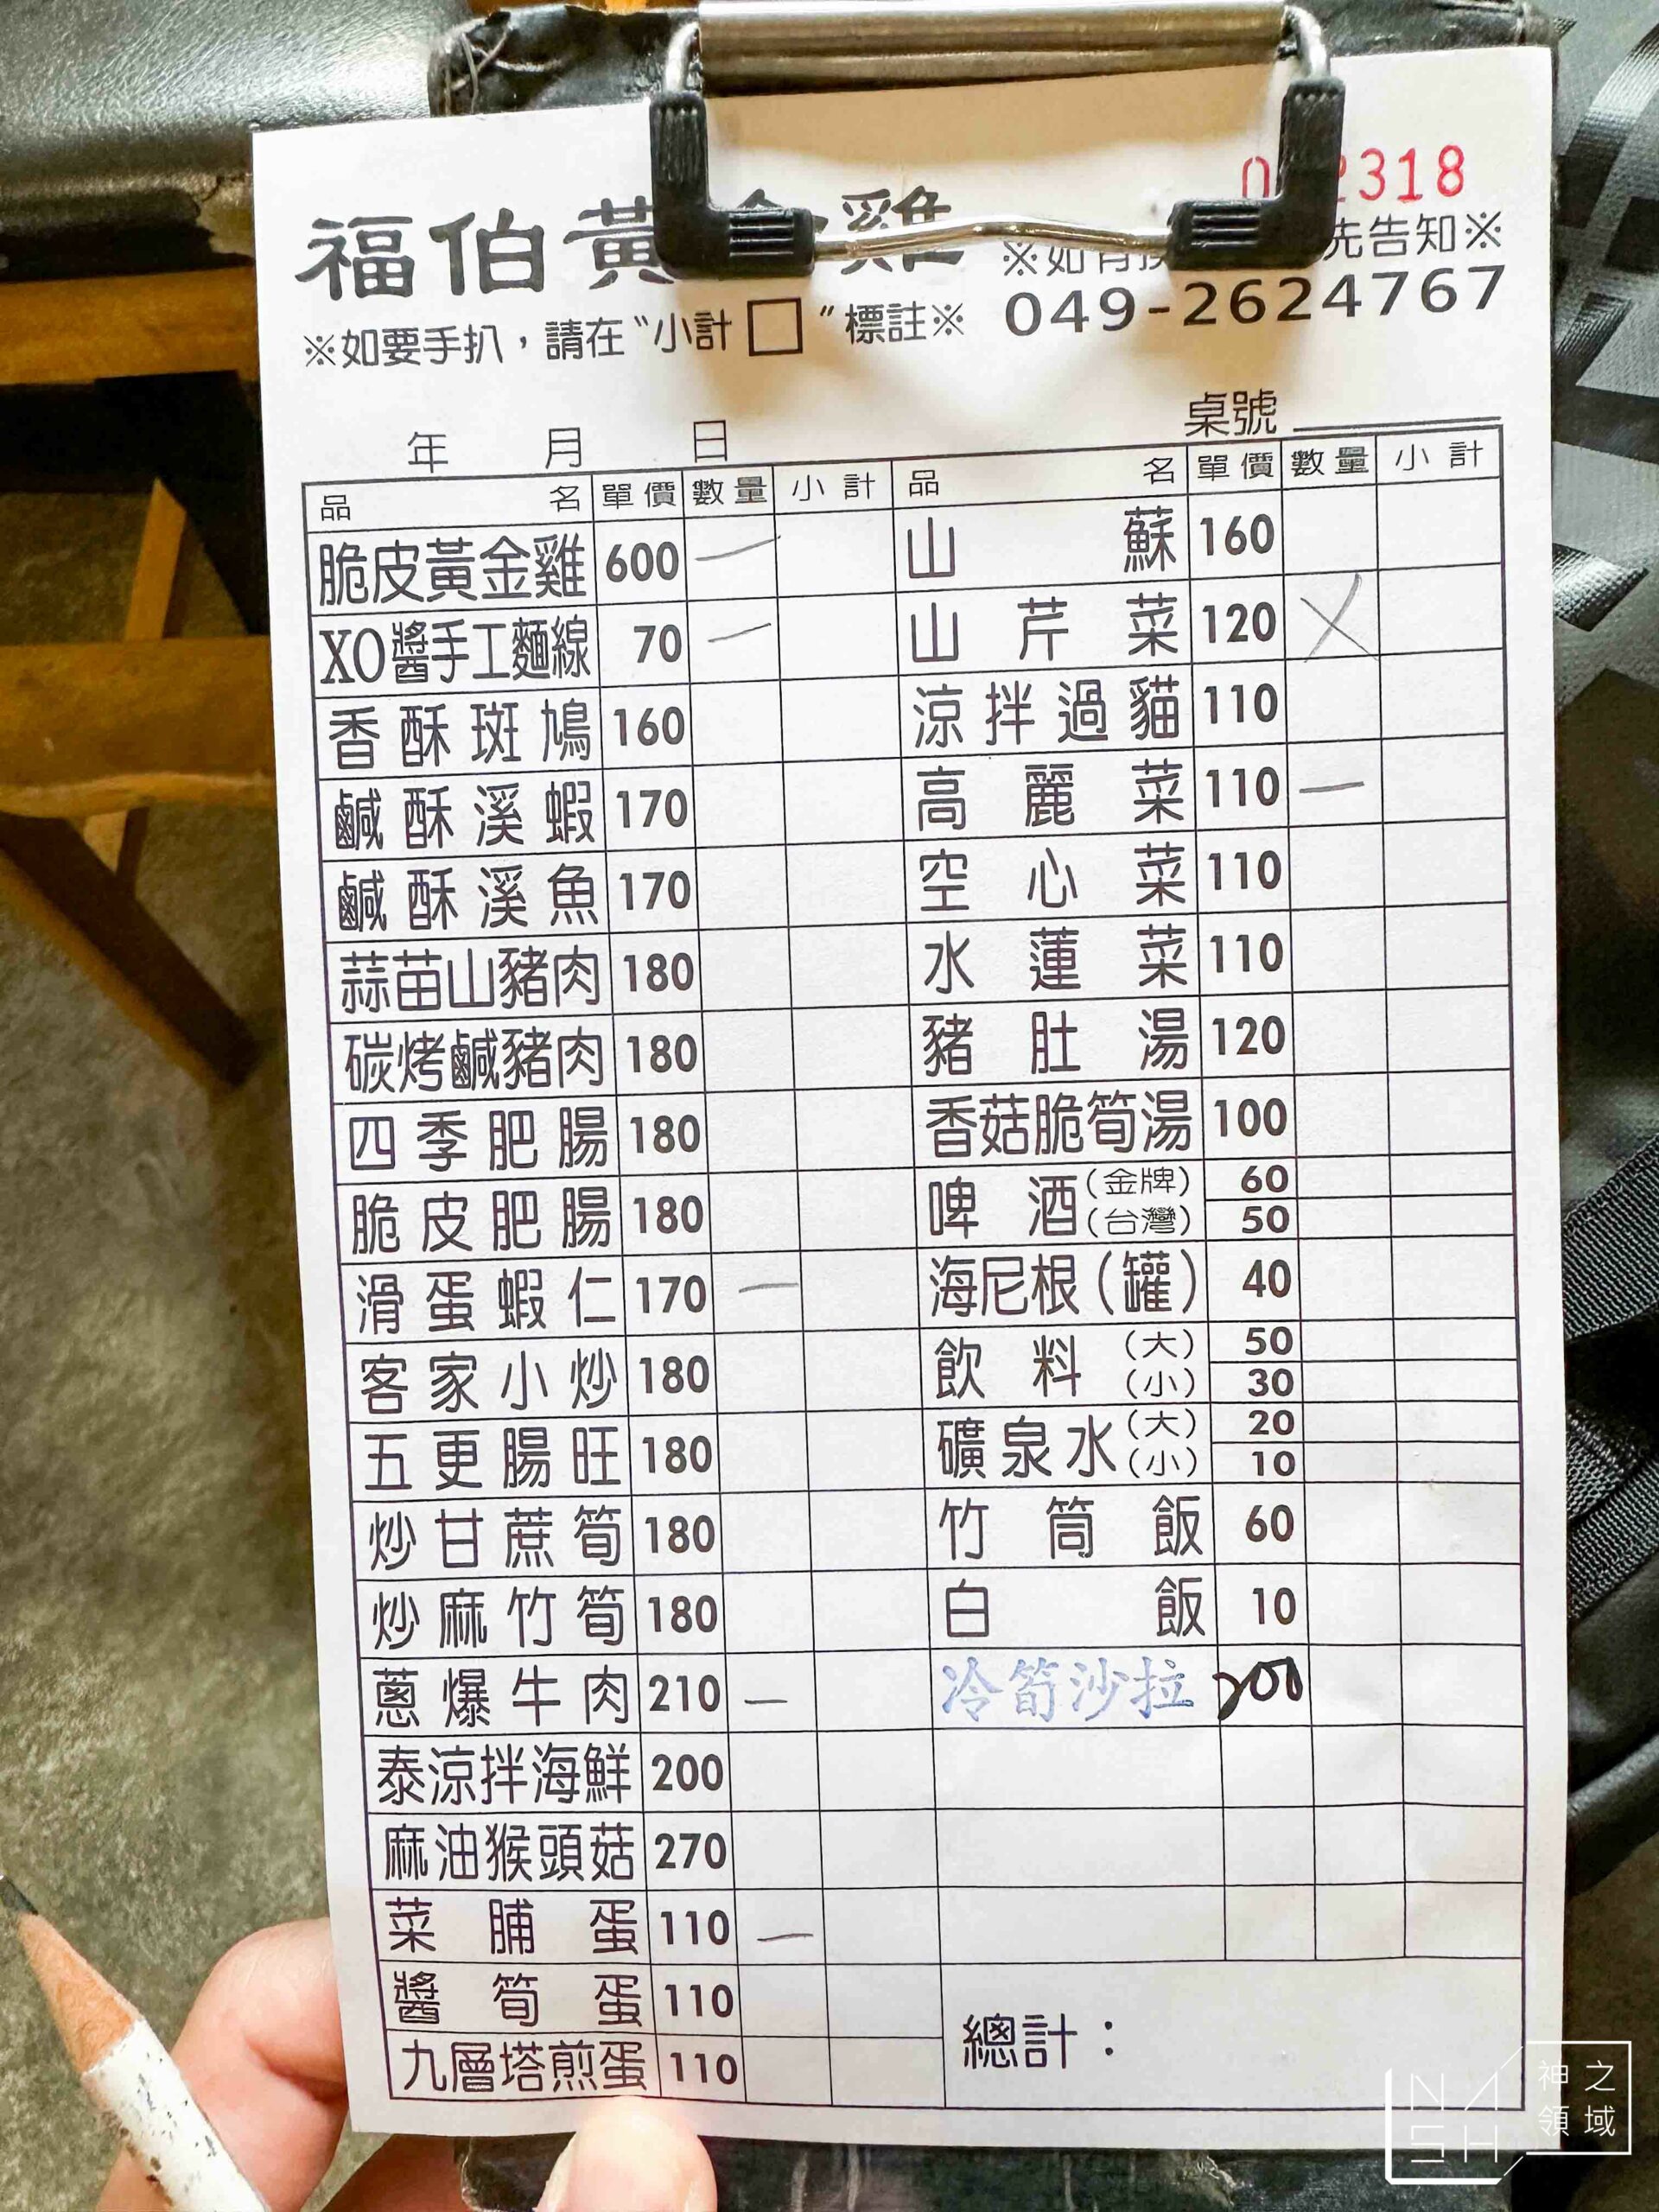 2318
福伯黃金雞
※如有 先告知※
049-2624767
※如要手扒，請在“小計□”標註※
年 月 日 桌號
品名 單價 數量 小計 品名 單價 數量 小計
脆皮黃金雞 600 一 山蘇 160
XO醬手工麵線 70 一 山芹菜 120 X
香酥斑鳩 160 涼拌過貓 110
鹹酥溪蝦 170 高麗菜 110 一
鹹酥溪魚 170 空心菜 110
蒜苗山豬肉 180 水蓮菜 110
碳烤鹹豬肉 180 豬肚湯 120
四季肥腸 180 香菇脆筍湯 100
脆皮肥腸 180 啤酒(金牌) 60
(台灣) 50
滑蛋蝦仁 170 一 海尼根(罐) 40
客家小炒 180 飲料(大) 50
(小) 30
五更腸旺 180 礦泉水(大) 20
(小) 10
炒甘蔗筍 180 竹筒飯 60
炒麻竹筍 180 白飯 10
蔥爆牛肉 210 一 冷筍沙拉 200
泰涼拌海鮮 200
麻油猴頭菇 270
菜脯蛋 110 一
醬筍蛋 110
九層塔煎蛋 110
總計：
NASH 神之領域